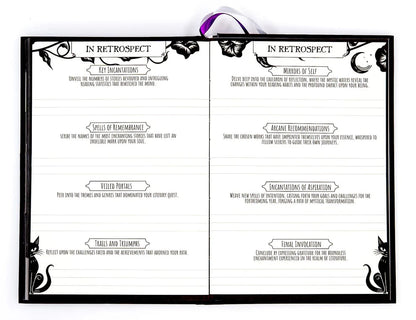 IN RETROSPECT
KEY INCANTATIONS
UNVEIL THE NUMBERS OF STORIES DEVOURED AND INTRIGUING
READING STATISTICS THAT BEWITCHED THE MIND.
SPELLS OF REMEMBRANCE
SCRIBE THE NAMES OF THE MOST ENCHANTING STORIES THAT HAVE LEFT AN
INDELIBLE MARK UPON YOUR SOUL.
VEILED PORTALS
PEER INTO THE THEMES AND GENRES THAT DOMINATED YOUR LITERARY QUEST.
TRAILS AND TRIUMPHS
REFLECT UPON THE CHALLENGES FACED AND THE ACHIEVEMENTS THAT ADORNED YOUR PATH.
IN RETROSPECT
MIRRORS OF SELF
DELVE DEEP INTO THE CAULDRON OF REFLECTION, WHERE THE MYSTIC WATERS REVEAL THE
CHANGES WITHIN YOUR READING HABITS AND THE PROFOUND IMPACT UPON YOUR BEING.
ARCANE RECOMMENDATIONS
SHARE THE CHOSEN WORKS THAT HAVE IMPRINTED THEMSELVES UPON YOUR ESSENCE, WHISPERED TO
FELLOW SEEKERS TO GUIDE THEIR OWN JOURNEYS.
INCANTATIONS OF ASPIRATION
WEAVE NEW SPELLS OF INTENTION, CASTING FORTH YOUR GOALS AND CHALLENGES FOR THE
FORTHCOMING YEAR, FORGING A PATH OF MYSTICAL TRANSFORMATION.
FINAL INVOCATION
CONCLUDE BY EXPRESSING GRATITUDE FOR THE BOUNDLESS
ENCHANTMENT EXPERIENCED IN THE REALM OF LITERATURE.